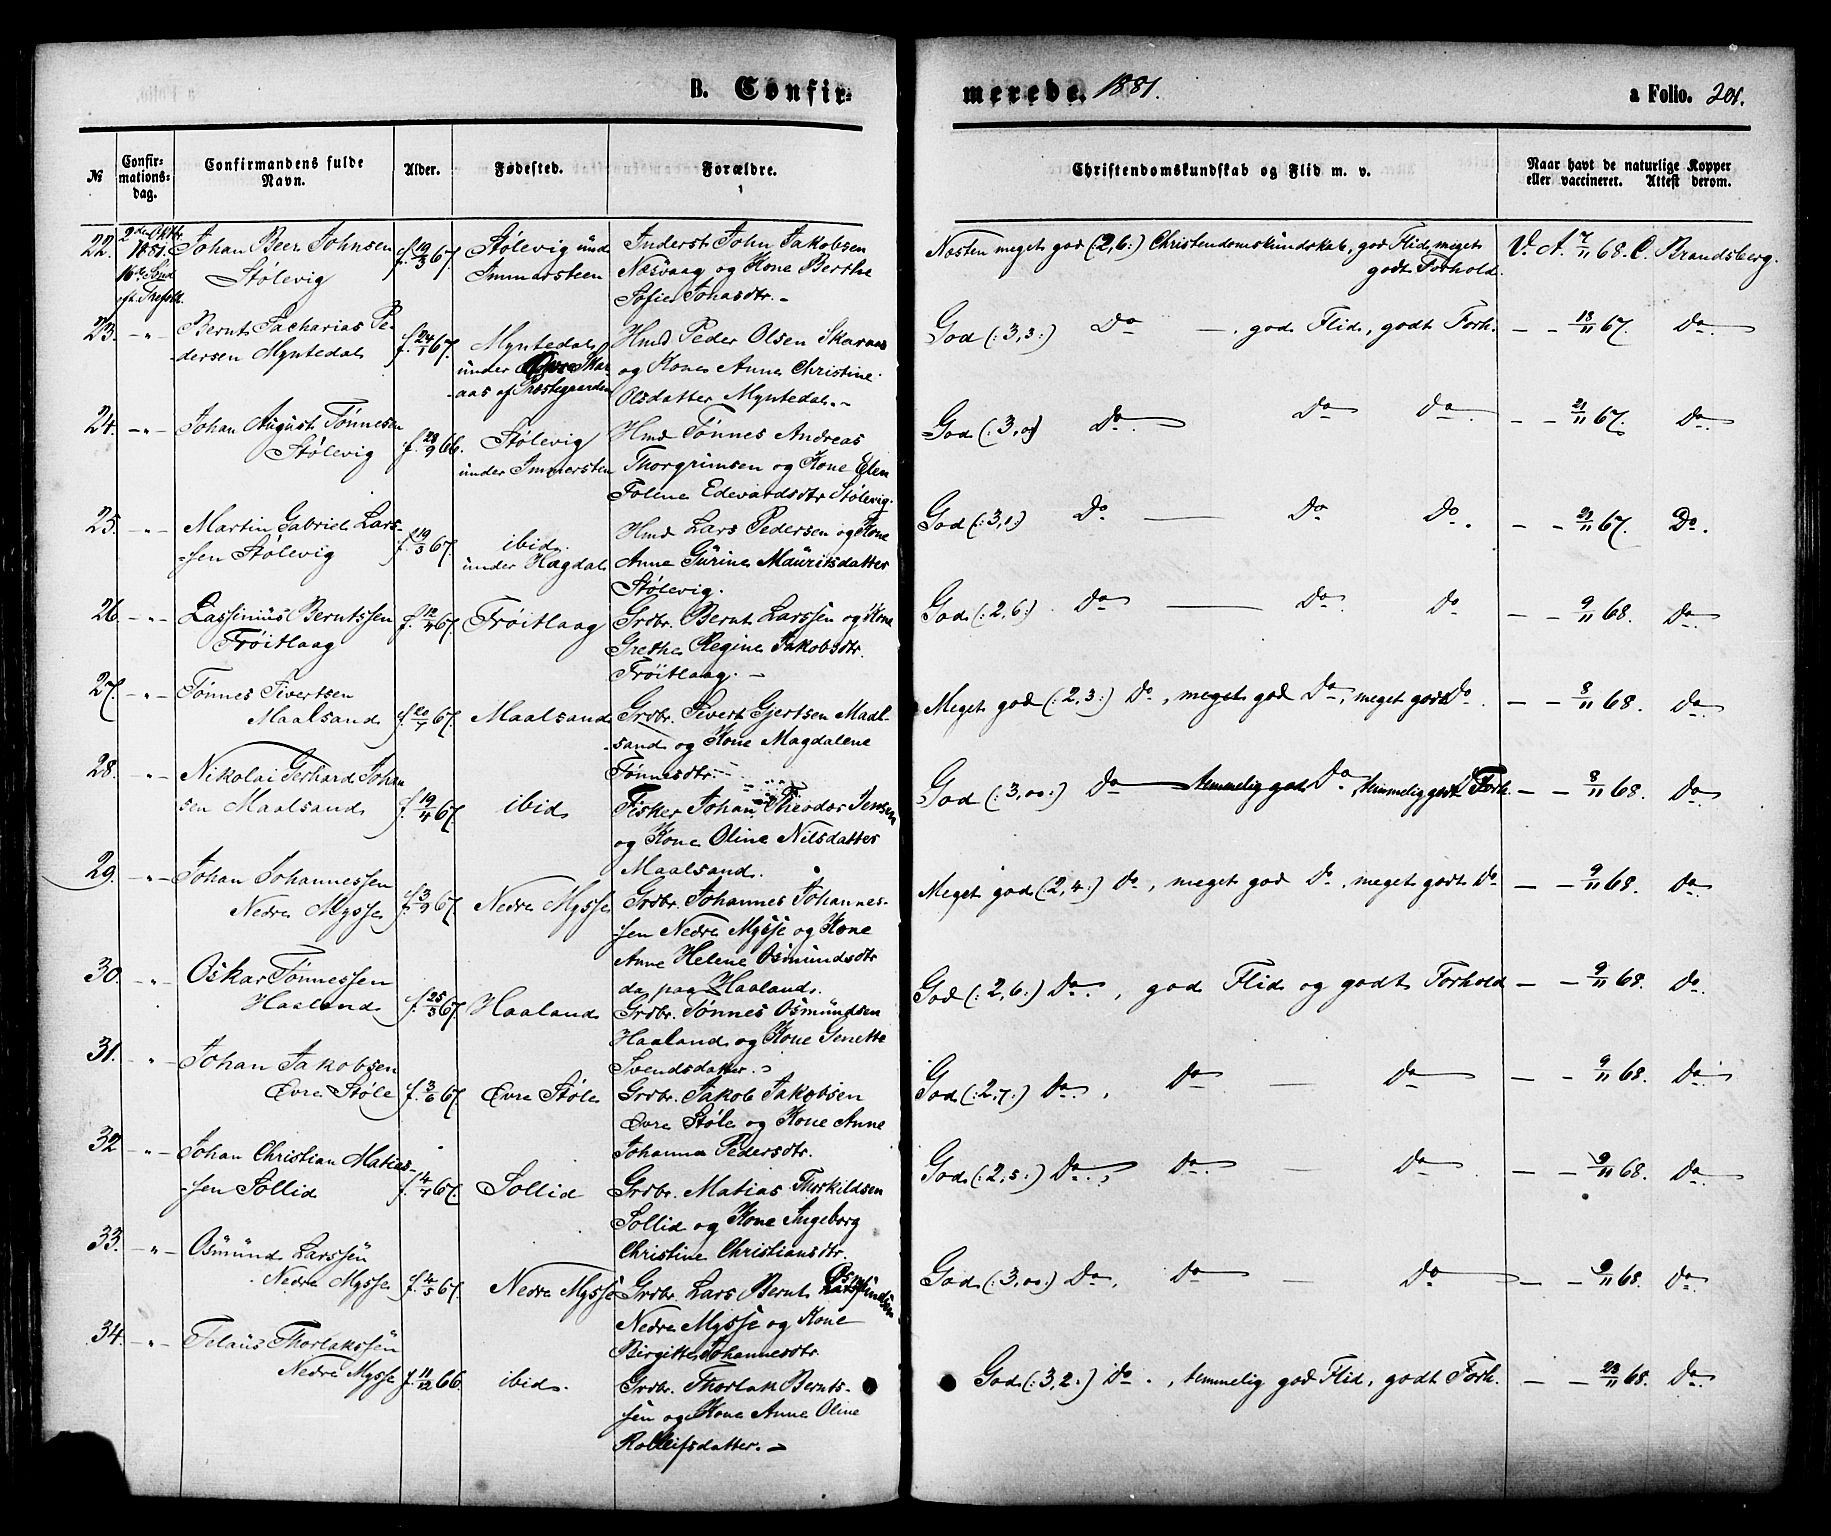 B. Confir-
merede. 1881.
a Folio. 201.
№
Confirmationsdag.
Confirmandens fulde Navn.
Alder.
Fødested.
Forældre.
Christendomskundskab og Flid m. v.
Naar havt de naturlige Kopper eller vaccineret. Attest derom.
22. 2den Oktbr. Johan Beer Johnsen f. 19/3 67. Stølevig und. Inderst John Jakobsen Næsten meget god (:2,6:) Christendomskundskab, god Flid, meget V. A. 7/11 68. C. Brandsberg.
1881. Stølevig Immersteen Næsvaag og Kone Berthe godt Forhold.
16de Sønd. Sofie Johasdtr. –
eft. Trefoldh.
23. –"– Bernt Zacharias Pe- f. 24/1 67. Myntedal Hmd Peder Olsen Skaraas God (:3,3:) Do – , god Flid, godt Forh. – – 13/11 67. Do.
dersen Myntedal under Øvre Ska- og Kone Anne Christine
aas af Præstegaarden Olsdatter Myntedal. –
24. –"– Johan August Tønnesen f. 28/9 66. Stølevig Hmd Tønnes Andreas God (:3,0) Do Do Do – – 21/11 67. Do.
Stølevig under Immersten Thorgrimsen og Kone Elen
Toline Edevardsdtr Stølevig.
25. –"– Martin Gabriel Lars- f. 19/3 67. ibid. Hmd Lars Pedersen og Kone God (:3,1:) Do – Do Do. – – 21/11 67. Do.
sen Stølevig under Hagdal Anne Gurine Mauritsdatter
Stølevig.
26. –"– Lassinius Berntssen f. 12/4 67. Frøitlaag Grdbr. Bernt Larssen og Kone God (:2,6:) Do – Do. Do – – 9/11 68. Do.
Frøitlaag Grethe Regine Jakobsdtr.
Frøitlaag. –
27. –"– Tønnes Sivertsen f. 20/7 67. Maalsand Grdbr. Sivert Gjertsen Maal- Meget god (:2,3:) Do, meget god Do, meget godt Do. – – 8/11 68. Do.
Maalsand sand og Kone Magdalene
Tønnesdtr. –
28. –"– Nikolai Gerhard Johan- f. 19/4 67. ibid Fisker Johan Theodor Jensen God (:3,00:) Do temmelig god Do temmelig godt Forh. – – 8/11 68. Do.
sen Maalsand og Kone Oline Nilsdatter
Maalsand.
29. –"– Johan Johannessen f. 3/9 67. Nedre Mysse Grdbr. Johannes Johannes- Meget god (2,4:) Do, meget god Do, meget godt Do – – 9/11 68. Do.
Nedre Mysse sen Nedre Mysse og Kone
Anne Helene Osmundsdtr
da paa Haaland.
30. –"– Oskar Tønnessen f. 25/3 67. Haaland Grdbr. Tønnes Osmundsen God (:2,6:) Do., god Flid og godt Forhold – – 9/11 68. Do.
Haaland Haaland og Kone Genette
Svendsdatter. –
31. –"– Johan Jakobsen f. 3/6 67. Øvre Støle Grdbr. Jakob Jakobsen God (:2,7:) Do., Do – Do – – 9/11 68. Do.
Øvre Støle Øvre Støle og Kone Anne
Johanne Pedersdtr.
32. –"– Johan Christian Matias- f. 4/7 67. Sollid Grdbr. Matias Thorkildsen God (:2,5:) Do., Do. – Do – – 9/11 68. Do.
sen Sollid Sollid og Kone Ingeborg
Christine Christiansdtr.
33. –"– Osmund Larssen f. 4/5 67. Nedre Mysse Grdbr. Lars Bernt Osmundsen God (:3,00:) Do, Do – Do – – 9/11 68. Do.
Nedre Mysse Nedre Mysse og Kone
Birgitte Johannesdtr.
34. –"– Telaus Thorlakssen f. 11/12 66. ibid. Grdbr. Thorlak Bernts- God (:3,2:) Do., temmelig god Flid, godt Forh. – – 23/11 68. Do.
Nedre Mysse sen og Kone Anne Oline
Rolleifsdatter. –